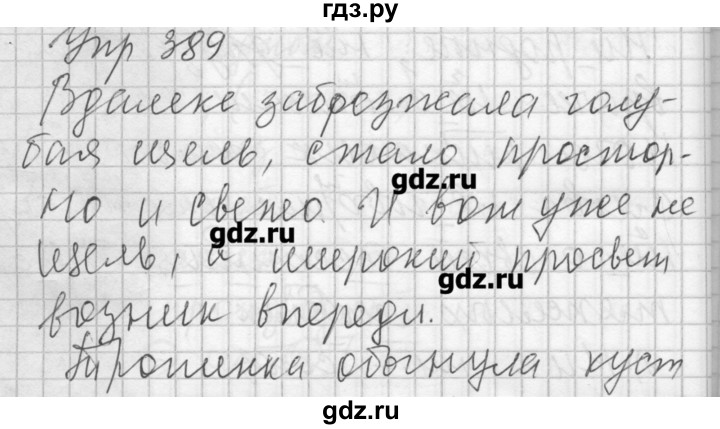 гдз.ру
Упр 389
Вдалеке забрезжала голу-
бая щель, стало простор-
но и свежо. И вот уже не
gdz.ru
gdz.ru
щель, а широкий просвет
gdz.ru
возник впереди.
Тропинка обогнула куст
gdz.ru